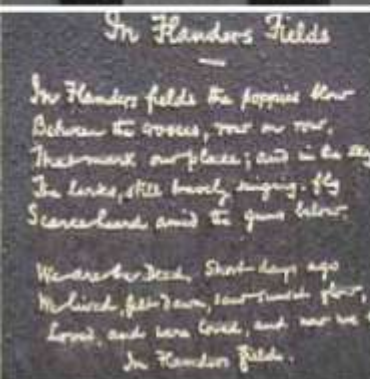 In Flanders Fields
In Flanders fields the poppies blow
Between the crosses, row on row,
That mark our place; and in the sky
The larks, still bravely singing, fly
Scarce heard amid the guns below.
We are the Dead. Short days ago
We lived, felt dawn, saw sunset glow,
Loved, and were loved, and now we
In Flanders fields.